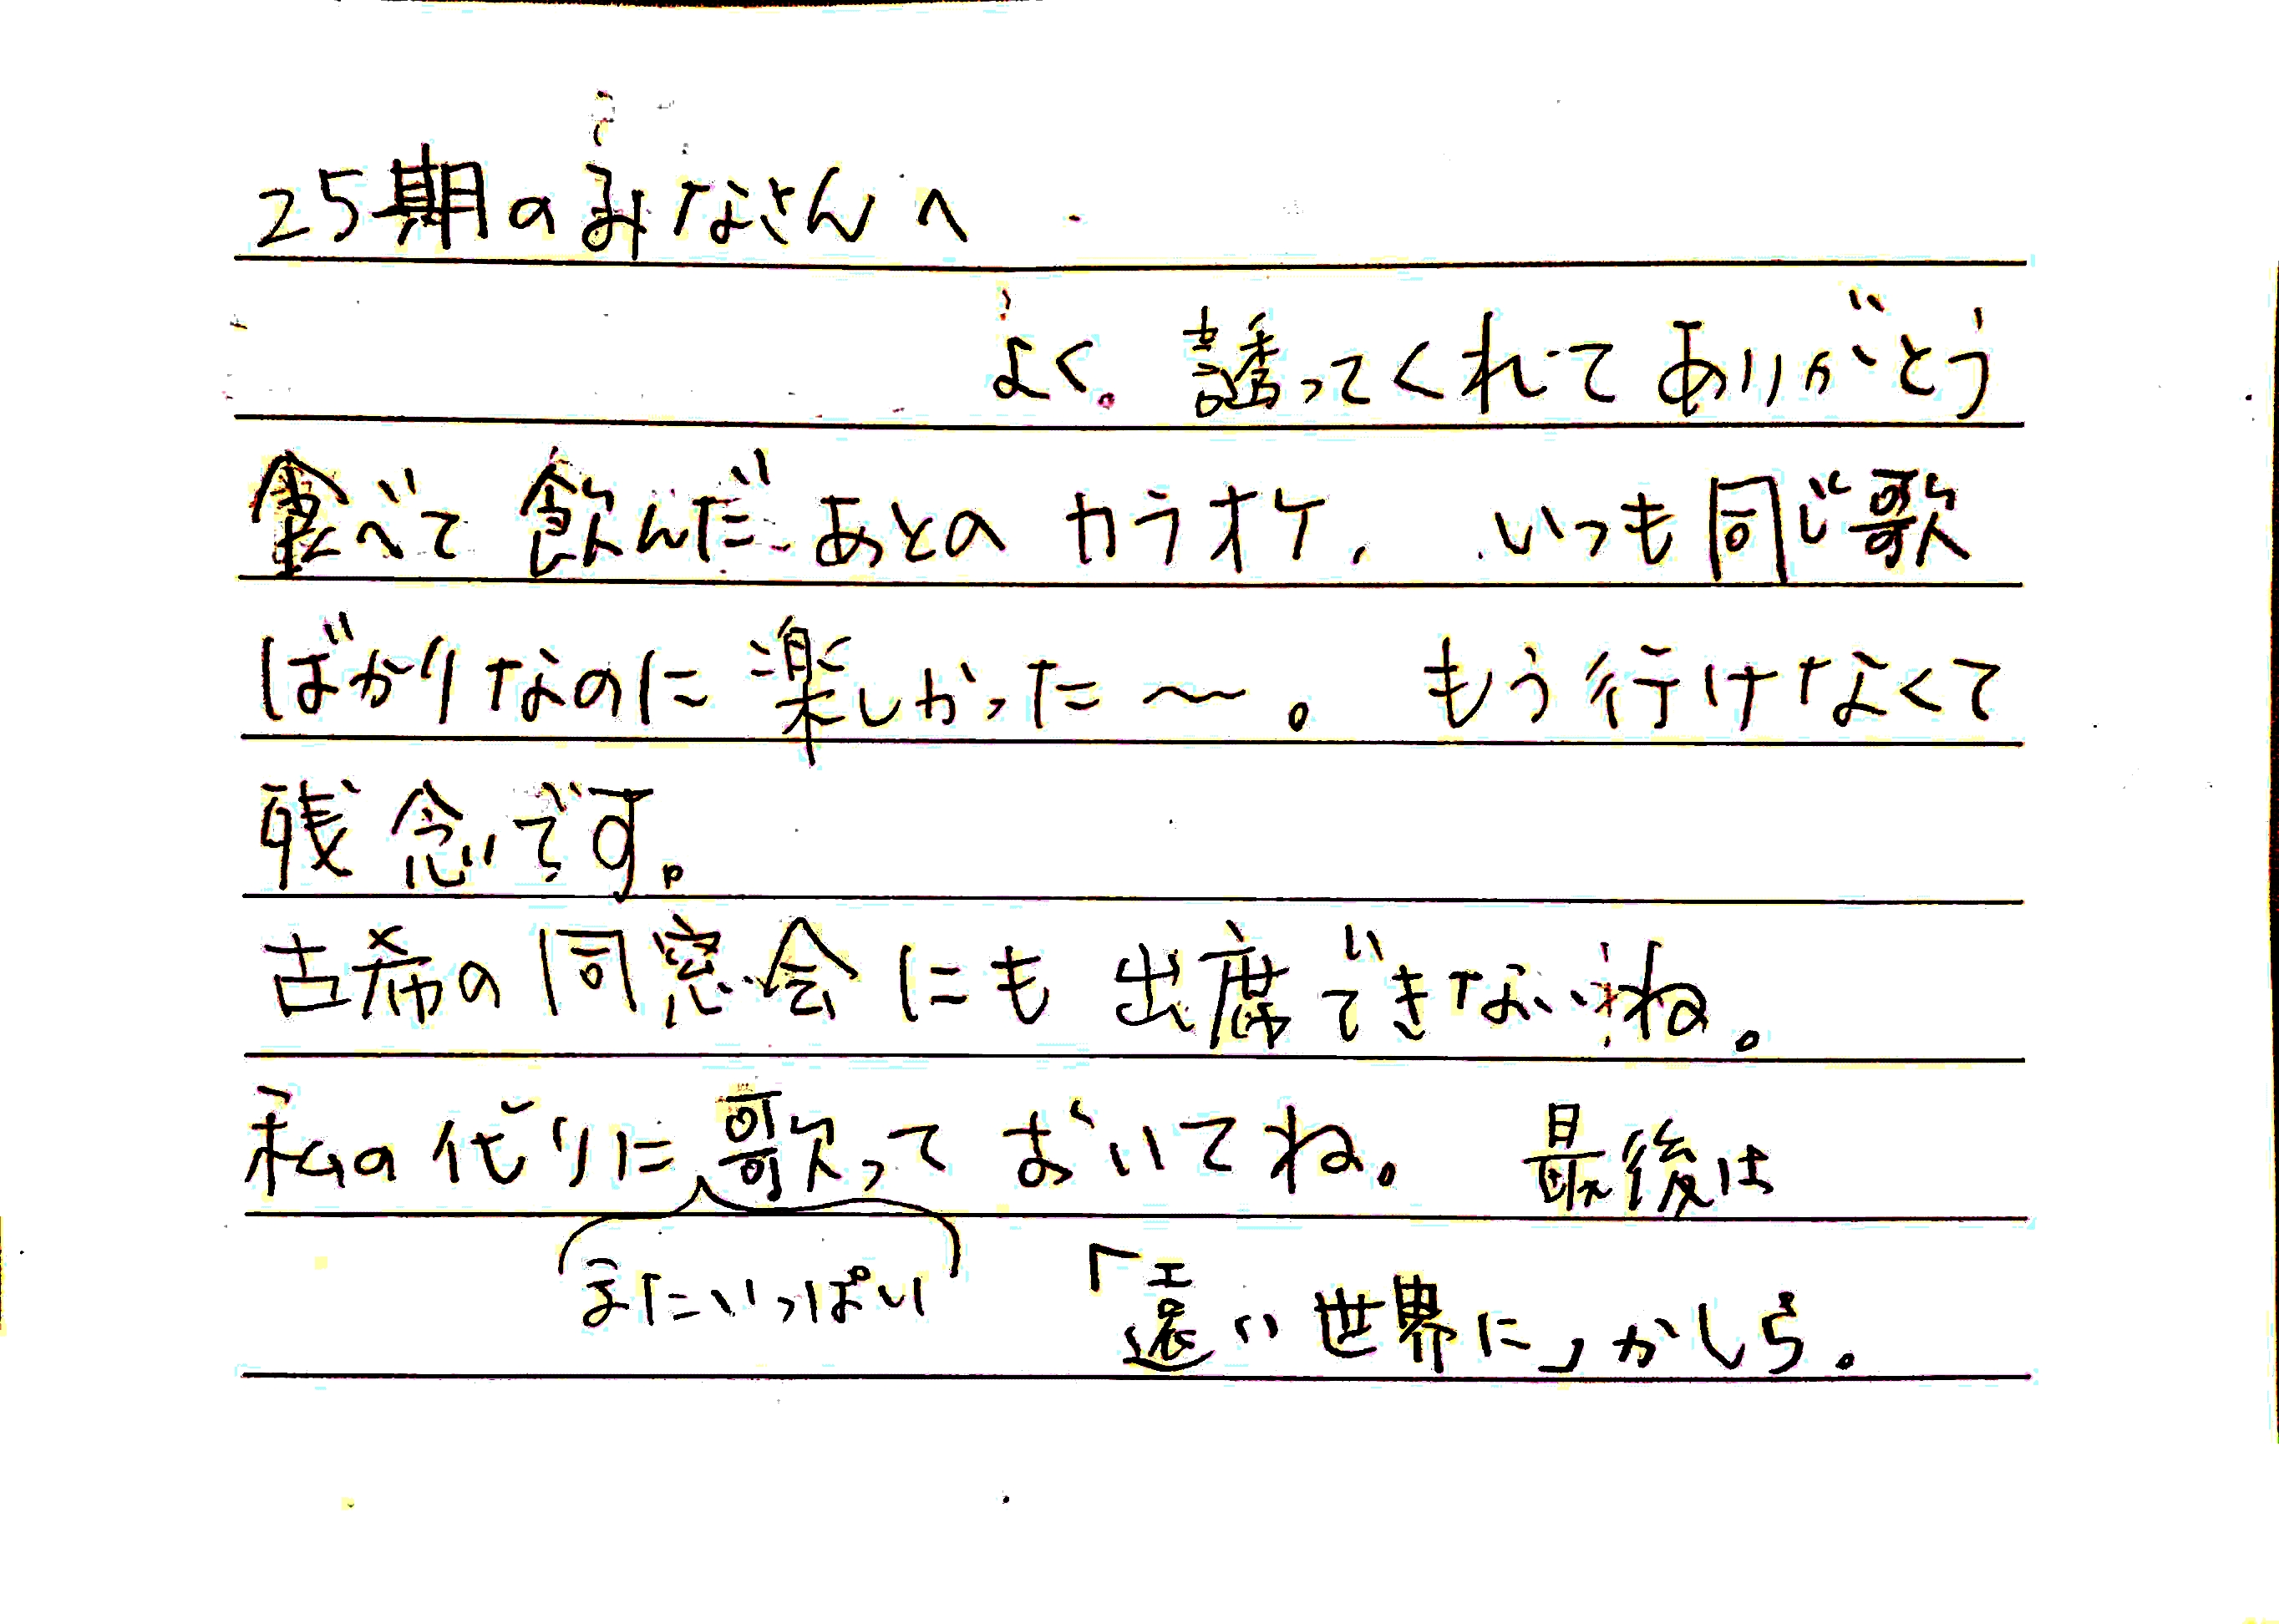 25期のみなさんへ
よく。誘ってくれてありがとう
食べて飲んだあとのカラオケ、いつも同じ歌
ばかりなのに楽しかった〜。もう行けなくて
残念です。
古希の同窓会にも出席できないね。
私の代りに歌っておいてね。最後は
いっぱい
「遠い世界に」かしら。